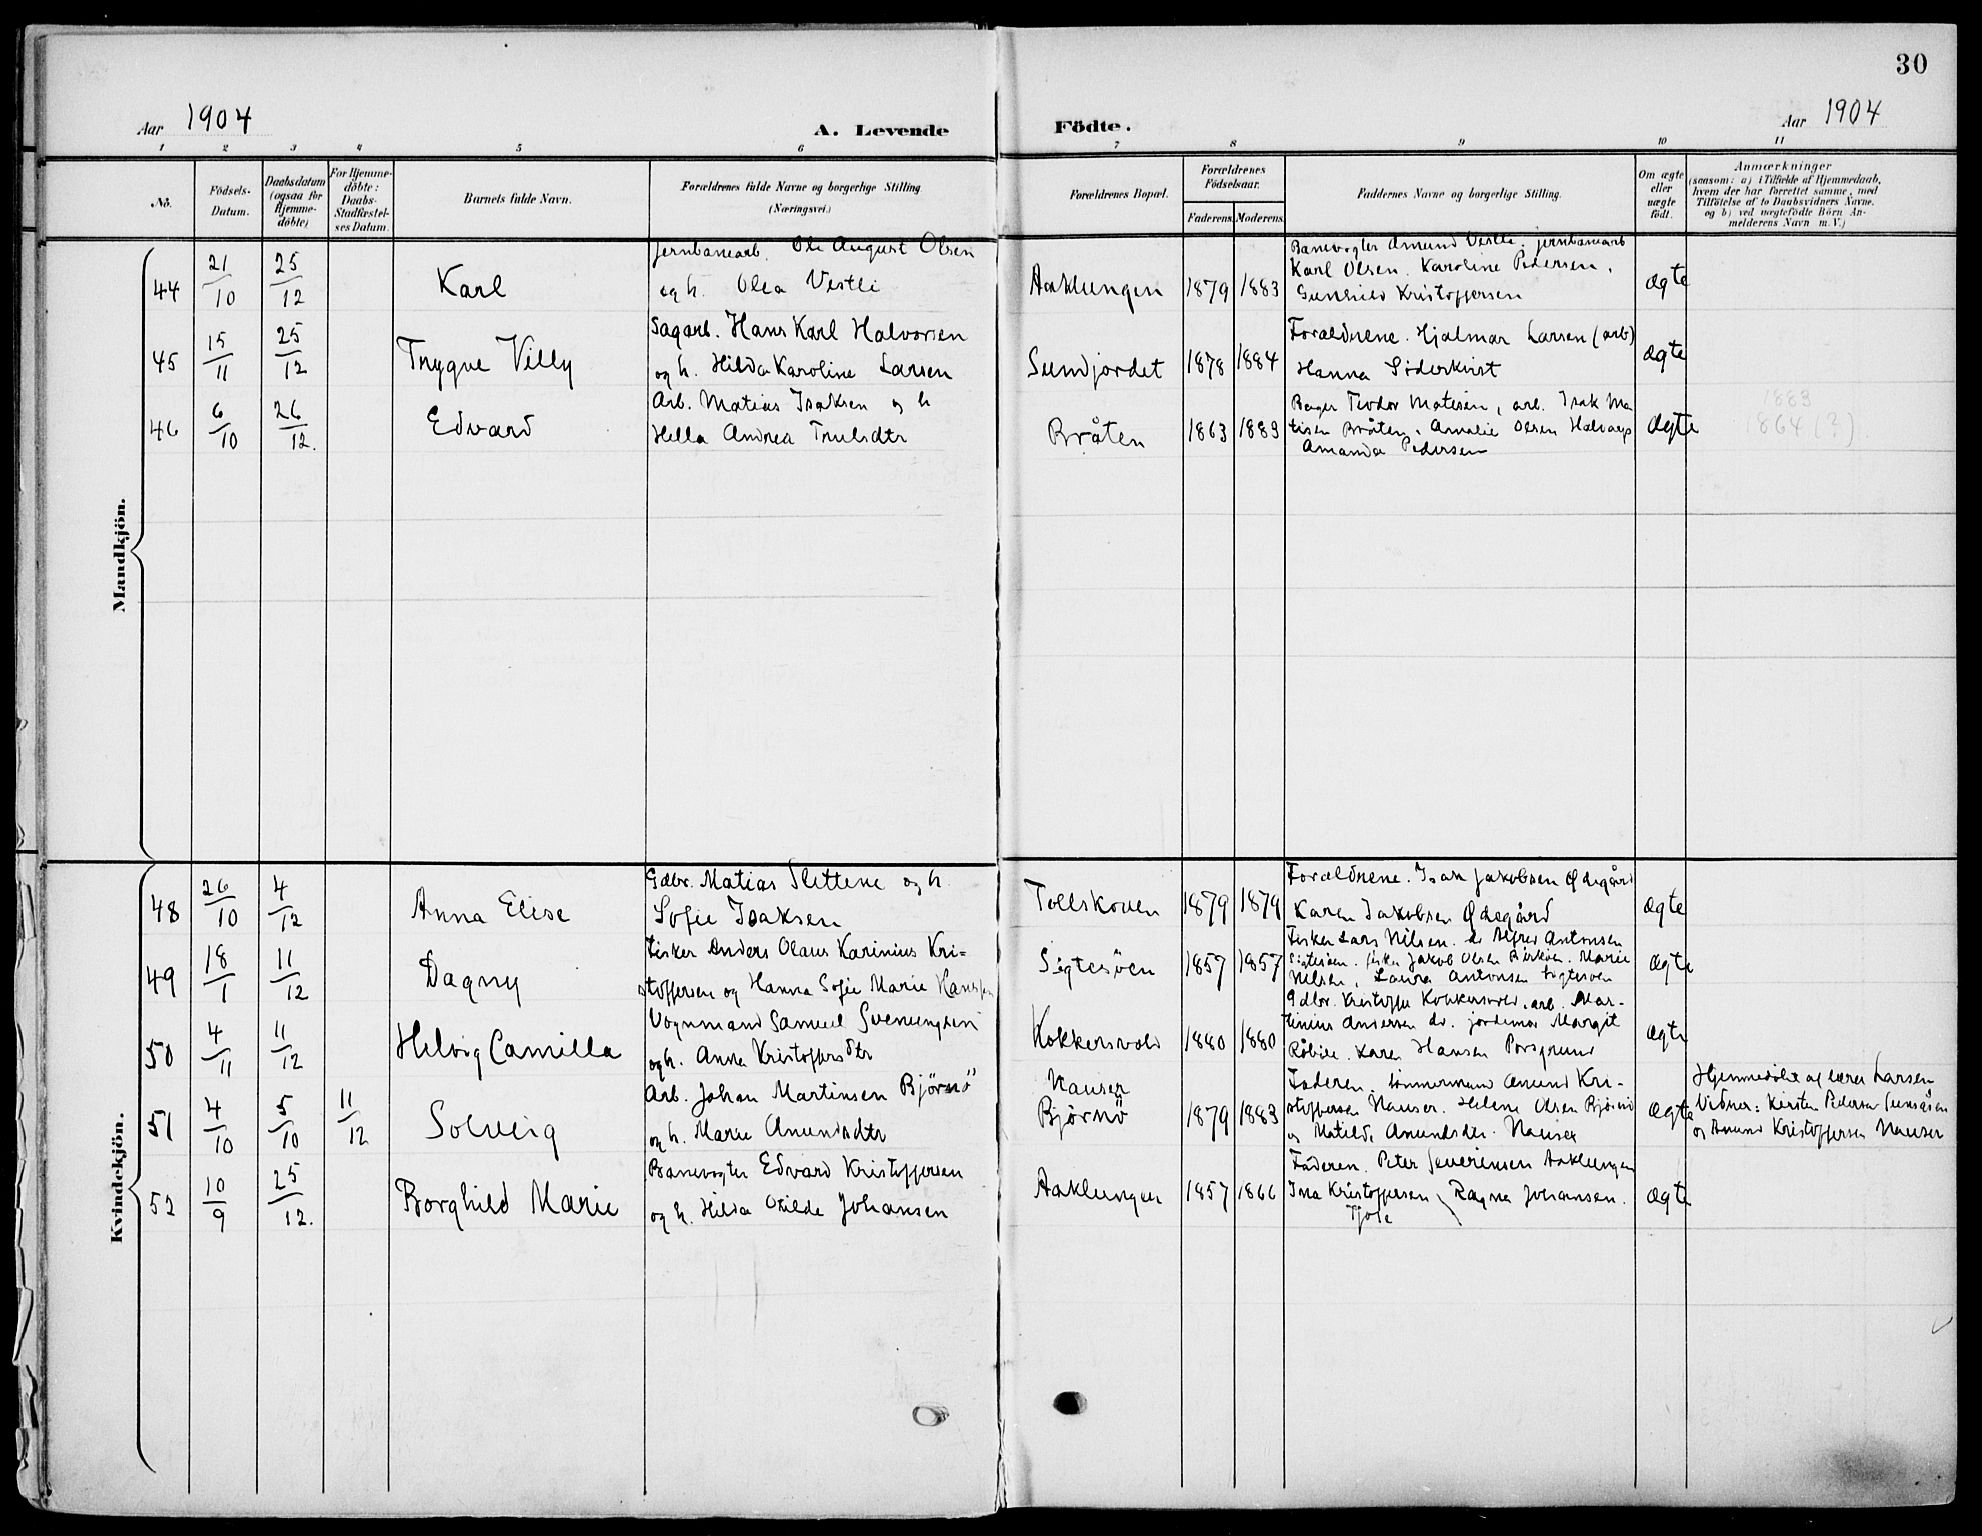 30
Aar 1904
A. Levende Födte.
Aar 1904
1 2 3 4 5 6 7 8 9 10 11
No.
Födsels-
Datum.
Daabsdatum
(ogsaa for
Hjemme-
döbte)
For Hjemme-
döbte:
Daabs-
Stadfæstel-
ses Datum.
Barnets fulde Navn.
Forældrenes fulde Navne og borgerlige Stilling.
(Næringsvei.)
Forældrenes Bopæl.
Forældrenes
Födselsaar.
Faderens. Moderens.
Faddernes Navne og borgerlige Stilling.
Om ægte
eller
uægte
födt.
Anmærkninger
(saasom: a) i Tilfælde af Hjemmedaab,
hvem der har forrettet samme, med
Tilföielse af to Daabsvidners Navne.
og b) ved uægtefödte Börn An-
melderens Navn m. V.)
Mandkjön.
44
21/10
25/12
Karl
Jernbanearb. Ole August Olsen
og h. Olea Vestli
Aaklungen
1879 1883
Banevogter Amund Vestli. jernbanearb
Karl Olsen. Karoline Pedersen.
Gunhild Kristoffersen
ægte
45
15/11
25/12
Trygve Villy
Sagarb. Hans Karl Halvorsen
og h. Hilda Karoline Larsen
Sundjordet
1878 1884
Forældrene. Hjalmar Larsen (arb)
Hanna Söderkvist
ægte
46
6/10
26/12.
Edvard
Arb. Matias Isaksen og h
Hella Andrea Trulsdtr
Bråten
1863 1883
Teodor Matisen, arb. Isak Ma-
tisen Bråten. Amalie Olsen
Amanda Pedersen
ægte
1883
1864 (?)
Kvindekjön.
48
26/10
4/12
Anna Elise
Gdbr. Matias Slettene og h.
Sofie Isaksen
Tollskoven
1879 1879
Forældrene. Isak Jakobsen Ødegård
Karen Jakobsen Ødegård
ægte
49
18/1
11/12
Dagny
Fisker Anders Olaus Karinius Kri-
stoffersen og Hanna Sofie Marie Hansen
Sigtesöen
1857 1857
Fisker Lars Nilsen. do Alfred Antonsen
Sigtesöen. fisker Jakob Olsen Marie
Nilsen, Laura Antonsen Sigtesöen
ægte
50
4/11
11/12
Helvig Camilla
Vognmand Samuel Svenungsen
og h. Anna Kristoffersdtr
Kokkersvold
1880 1880
Gdbr. Kristoffer Kokkersvold, arb. Mar-
tinius Andersen do. jordemor Margit
Karen Hansen Porsgrund
ægte
51
4/10
5/10
11/12
Solveig
Arb. Johan Martinsen Björnö
og h. Marie Amundsdtr
Nauser
Björnö
1879 1883
Faderen. tömmermand Amund Kri-
stoffersen Nauser. Helene Olsen Björnö
og Matilde Amundsdtr. Nauser
ægte
Hjemmedöbt af lærer Larsen
Vidner: Kirsten Pedersen
og Amund Kristoffersen Nauser
52
10/9
25/12.
Borghild Marie
Banevogter Edvard Kristoffersen
og h. Hilda Otilde Johansen
Aaklungen
1857 1866
Faderen. Peter Severinsen Aaklungen
Ina Kristoffersen Ragna Johansen.
Tjose
ægte